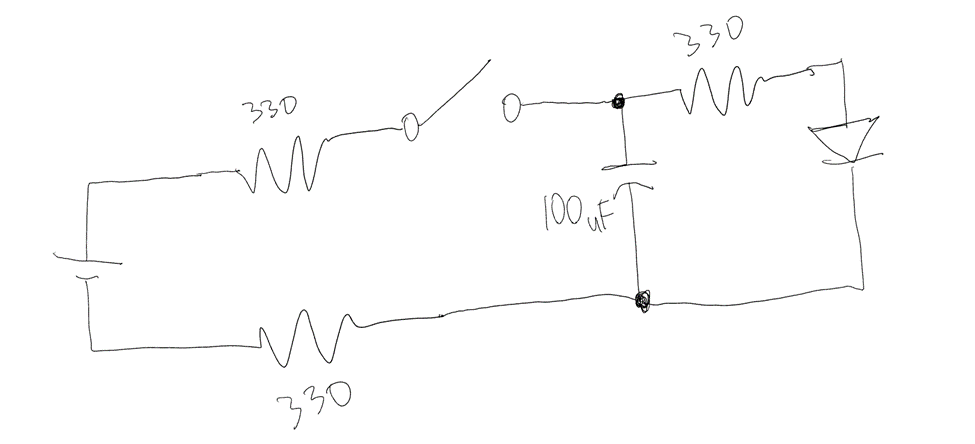 330
330
100uF
330